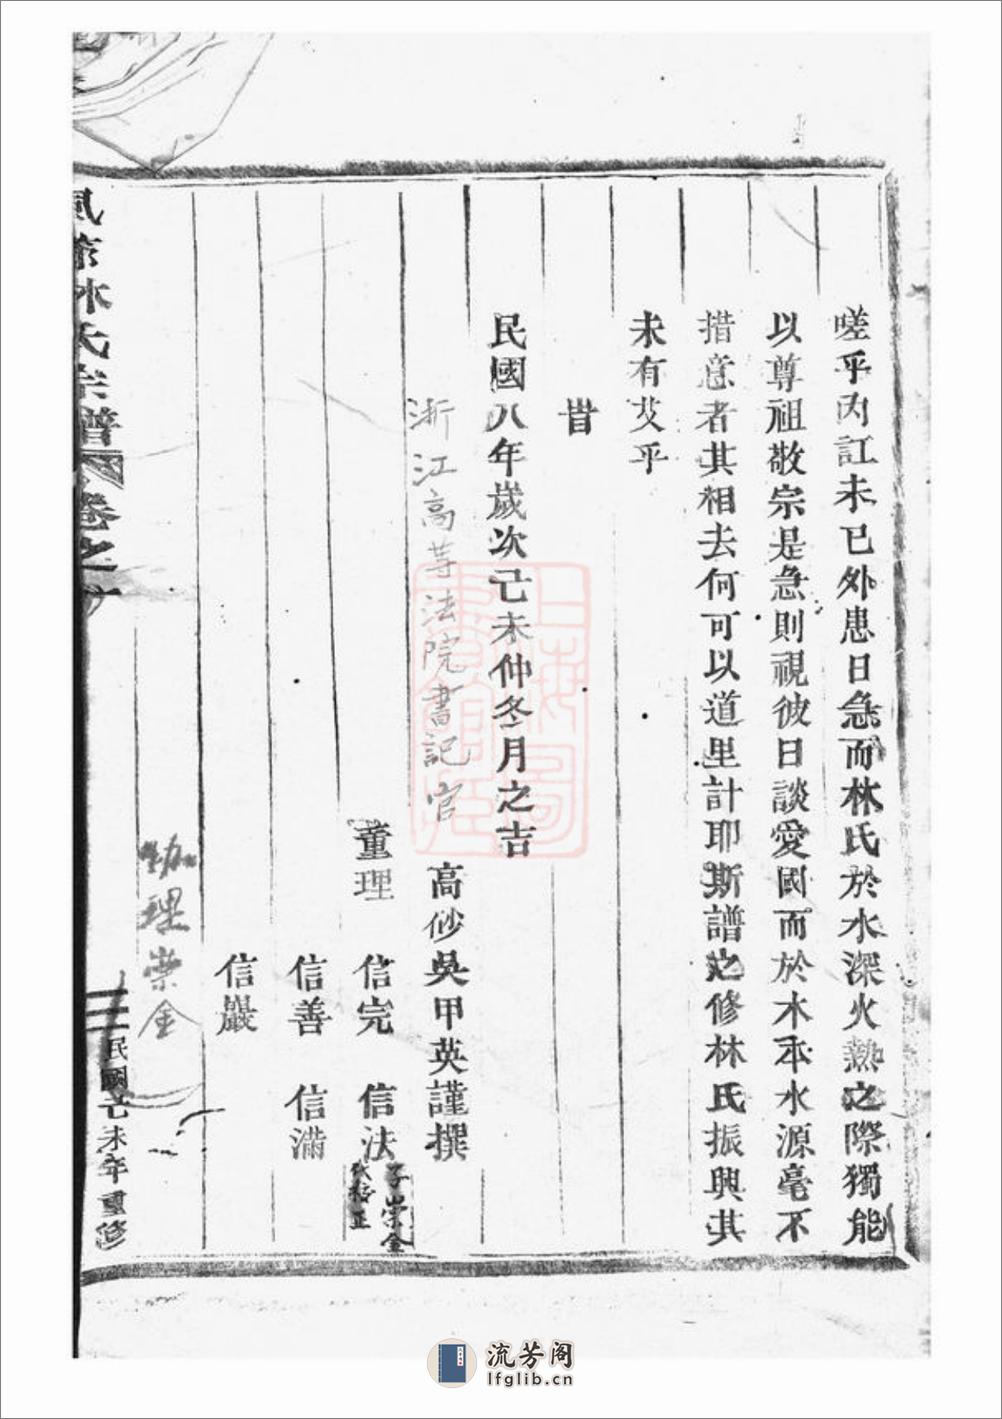 嗟乎內訌未已外患日急而林氏於水深火熱之際獨能
以尊祖敬宗是急則視彼日談愛國而於木本水源毫不
措意者其相去何可以道里計耶斯譜之修林氏振興其
未有艾乎
旹
民國八年歲次己未仲冬月之吉
浙江高等法院書記官 高砂吳甲英謹撰
董理 信完 信法 子崇金
信善 信滿
信巖
理崇金
林氏宗譜 卷之 民國己未年重修
上海圖書館藏
流芳阁
lfglib.cn